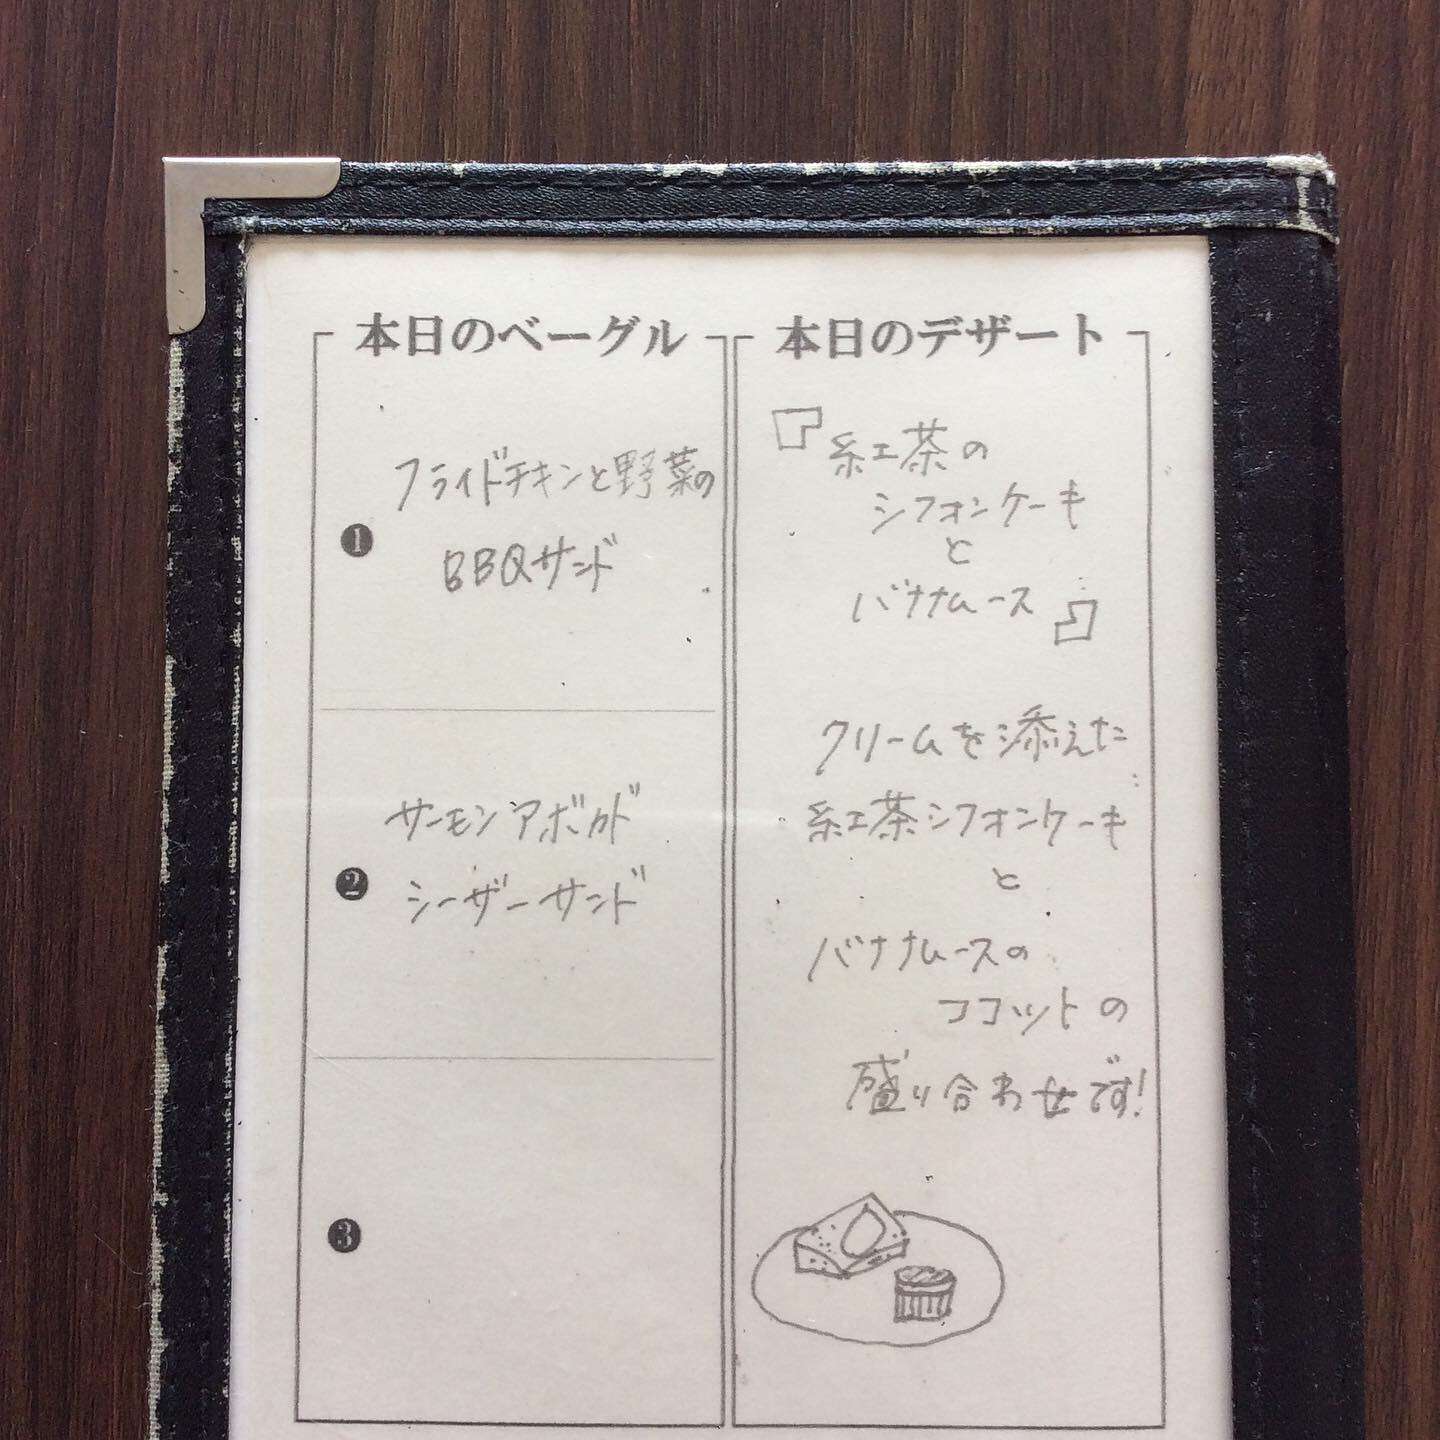 本日のベーグル
❶
フライドチキンと野菜の
BBQサンド
❷
サーモンアボカド
シーザーサンド
❸
本日のデザート
『紅茶の
シフォンケーキ
と
バナナムース』
クリームを添えた
紅茶シフォンケーキ
と
バナナムースの
ココットの
盛り合わせです!